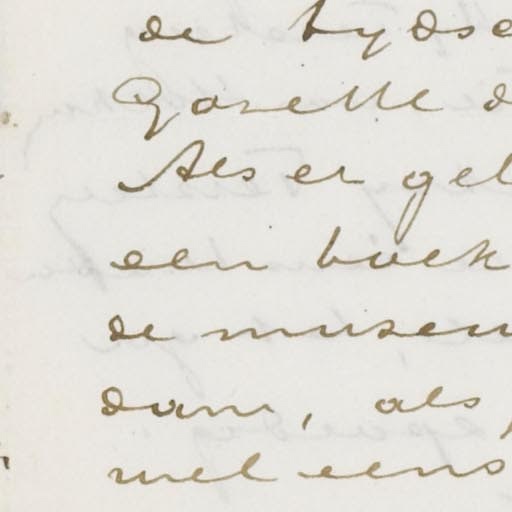 de tydsc
Gazette d
Als er gel
een boek
de museu
dam, als,
wel eens